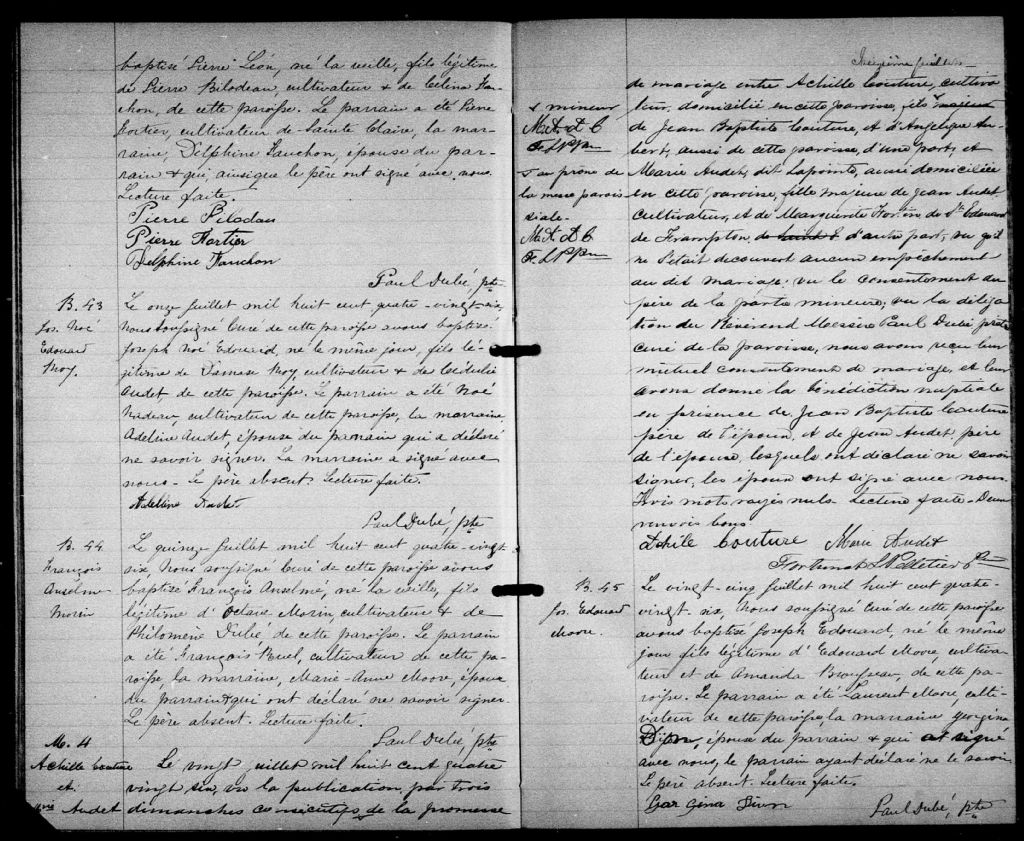 baptisé Pierre Léon, né la veille, fils légitime
de Pierre Bilodeau, cultivateur & de Celina Fau-
chon, de cette paroisse. Le parrain a été Pierre
Fortier, cultivateur de Sainte Claire, la mar-
raine, Delphine Fauchon, épouse du par-
rain & qui, ainsi que le père ont signé avec nous.
Lecture faite.
Pierre Bilodau
Pierre Fortier
Delphine Fauchon
Paul Dubé, ptre
B. 43
Jos. Noé
Edouard
Roy.
Le onze juillet mil huit cent quatre-vingt-six,
Nous soussigné Curé de cette paroisse avons baptisé
Joseph Noé Edouard, né le même jour, fils lé-
gitime de Damase Roy cultivateur & de Cédulie
Audet de cette paroisse. Le parrain a été Noé
Nadeau, cultivateur de cette paroisse, la marraine
Adeline Audet, épouse du parrain qui a déclaré
ne savoir signer. La marraine a signé avec
nous. Le père absent. Lecture faite.
Paul Dubé, ptre
B. 44
François
Anselme
Morin
Le quinze juillet mil huit cent quatre-vingt
six, Nous soussigné Curé de cette paroisse avons
baptisé François Anselme, né la veille, fils
légitime d'Octave Morin, cultivateur & de
Philomène Dubé de cette paroisse. Le parrain
a été François Ruel, cultivateur de cette pa-
roisse, la marraine, Marie-Anne Moore, épouse
du parrain & qui ont déclaré ne savoir signer.
Le père absent. Lecture faite.
Paul Dubé, ptre
M. 4
Achille Couture
et
Audet
Le vingt juillet mil huit cent quatre
vingt six, vu la publication, par trois
dimanches consécutifs de la promesse
de mariage entre Achille Couture, cultiva-
teur, domicilié en cette paroisse, fils majeur
de Jean Baptiste Couture, et d'Angélique Au-
bert, aussi de cette paroisse, d'une part; et
Marie Audet, dit Lapointe, aussi domiciliée
en cette paroisse, fille majeure de Jean Audet
cultivateur, et de Marguerite Fortin, de St. Edouard
de Frampton, d'autre part; vu qu'il
ne s'était découvert aucun empêchement
au dit mariage; vu le consentement du
père de la partie mineure; vu la déléga-
tion du Révérend Messire Paul Dubé prêtre
curé de la paroisse, nous avons reçu leur
mutuel consentement de mariage, et leur
avons donné la bénédiction nuptiale
en présence de Jean Baptiste Couture
père de l'époux, et de Jean Audet père
de l'épouse, lesquels ont déclaré ne savoir
signer, les époux ont signé avec nous.
Trois mots rayés nuls. Lecture faite. Deux
renvois bons.
Achile Couture Marie Audet
& mineur
M. A. A C
F. L. P. Ptre
& au prône de
la messe parois
siale.
M. A. A C
F. L. P. Ptre
B. 45
Jos. Edouard
Moore.
Le vingt-cinq juillet mil huit cent quatre-
vingt-six, Nous soussigné Curé de cette paroisse
avons baptisé Joseph Edouard, né le même
jour fils légitime d'Edouard Moore cultiva-
teur et de Amanda de cette pa-
roisse. Le parrain a été Laurent Moore, culti-
vateur de cette paroisse, la marraine Georgina
Dion, épouse du parrain & qui a signé
avec nous, le parrain ayant déclaré ne le savoir.
Le père absent. Lecture faite.
Paul Dubé, ptre